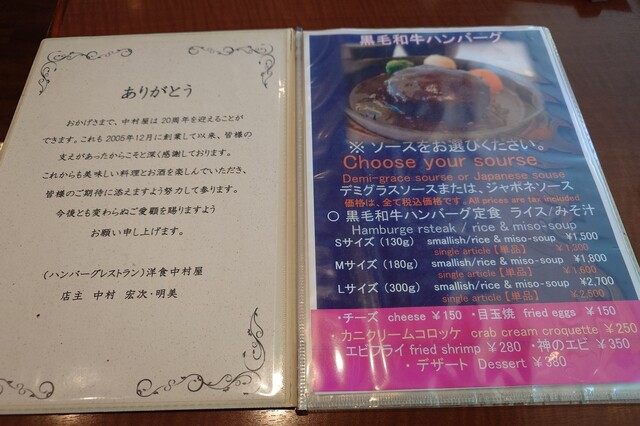 ありがとう
おかげさまで、中村屋は20周年を迎えることが
できます。これも2005年12月に創業して以来、皆様の
支えがあったからこそと深く感謝しております。
これからも美味しい料理とお酒を楽しんでいただき、
皆様のご期待に添えますよう努力して参ります。
今後とも変わらぬご愛顧を賜りますよう
お願い申し上げます。
(ハンバーグレストラン)洋食中村屋
店主 中村 宏次・明美
黒毛和牛ハンバーグ
※ ソースをお選びください。
Choose your sourse
Demi-grace sourse or Japanese souse
デミグラスソースまたは、ジャポネソース
価格は、全て税込価格です。All prices are tax included
○ 黒毛和牛ハンバーグ定食 ライス/みそ汁
Hamburge rsteak / rice & miso-soup
Sサイズ (130g) smallish/rice & miso-soup ¥1,500
single article【単品】 ¥1,300
Mサイズ (180g) smallish/rice & miso-soup ¥1,800
single article【単品】 ¥1,600
Lサイズ (300g) smallish/rice & miso-soup ¥2,700
single article【単品】 ¥2,500
・チーズ cheese ¥150 ・目玉焼 fried eggs ¥150
・カニクリームコロッケ crab cream croquette ¥250
エビフライ fried shrimp ¥280 ・神のエビ ¥350
・デザート Dessert ¥380